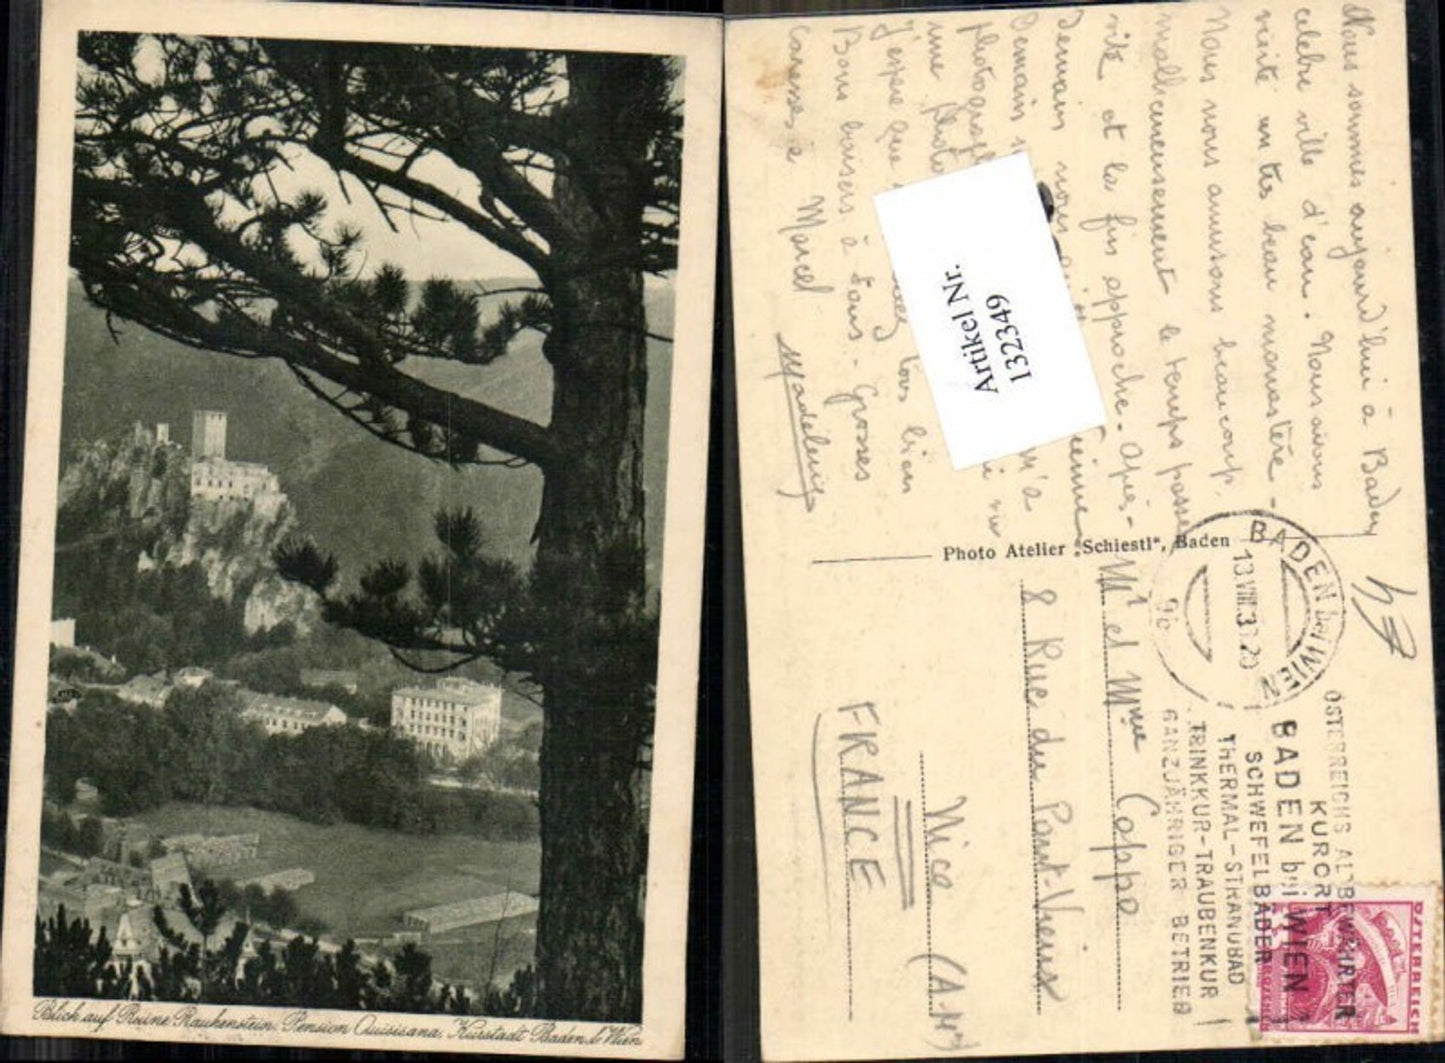 Blick auf Ruine Rauhenstein, Pension Quisisana, Kurstadt Baden b. Wien
Nous sommes aujourd'hui à Baden
celebre ville d'eau. Nous avons
visité un très beau monastère -
Nous nous amusons beaucoup.
malheureusement le temps passe
vite et la fin approche - Après-
Demain nous
Demain m'a
photograph
une photo
J'espère que tous bien
Bons baisers à tous - Grosses
Caresses à Marcel
Madeleine
Artikel Nr.
132349
Photo Atelier „Schiestl“, Baden
BADEN bei WIEN
ÖSTERREICHS ALTBEWÄHRTER
KURORT
BADEN bei WIEN
SCHWEFELBÄDER
THERMAL-STRANDBAD
TRINKKUR-TRAUBENKUR
GANZJÄHRIGER BETRIEB
ÖSTERREICH
Mr et Mme Cappe
8 Rue du Pont-Vieux
Nice (A-Mes)
FRANCE